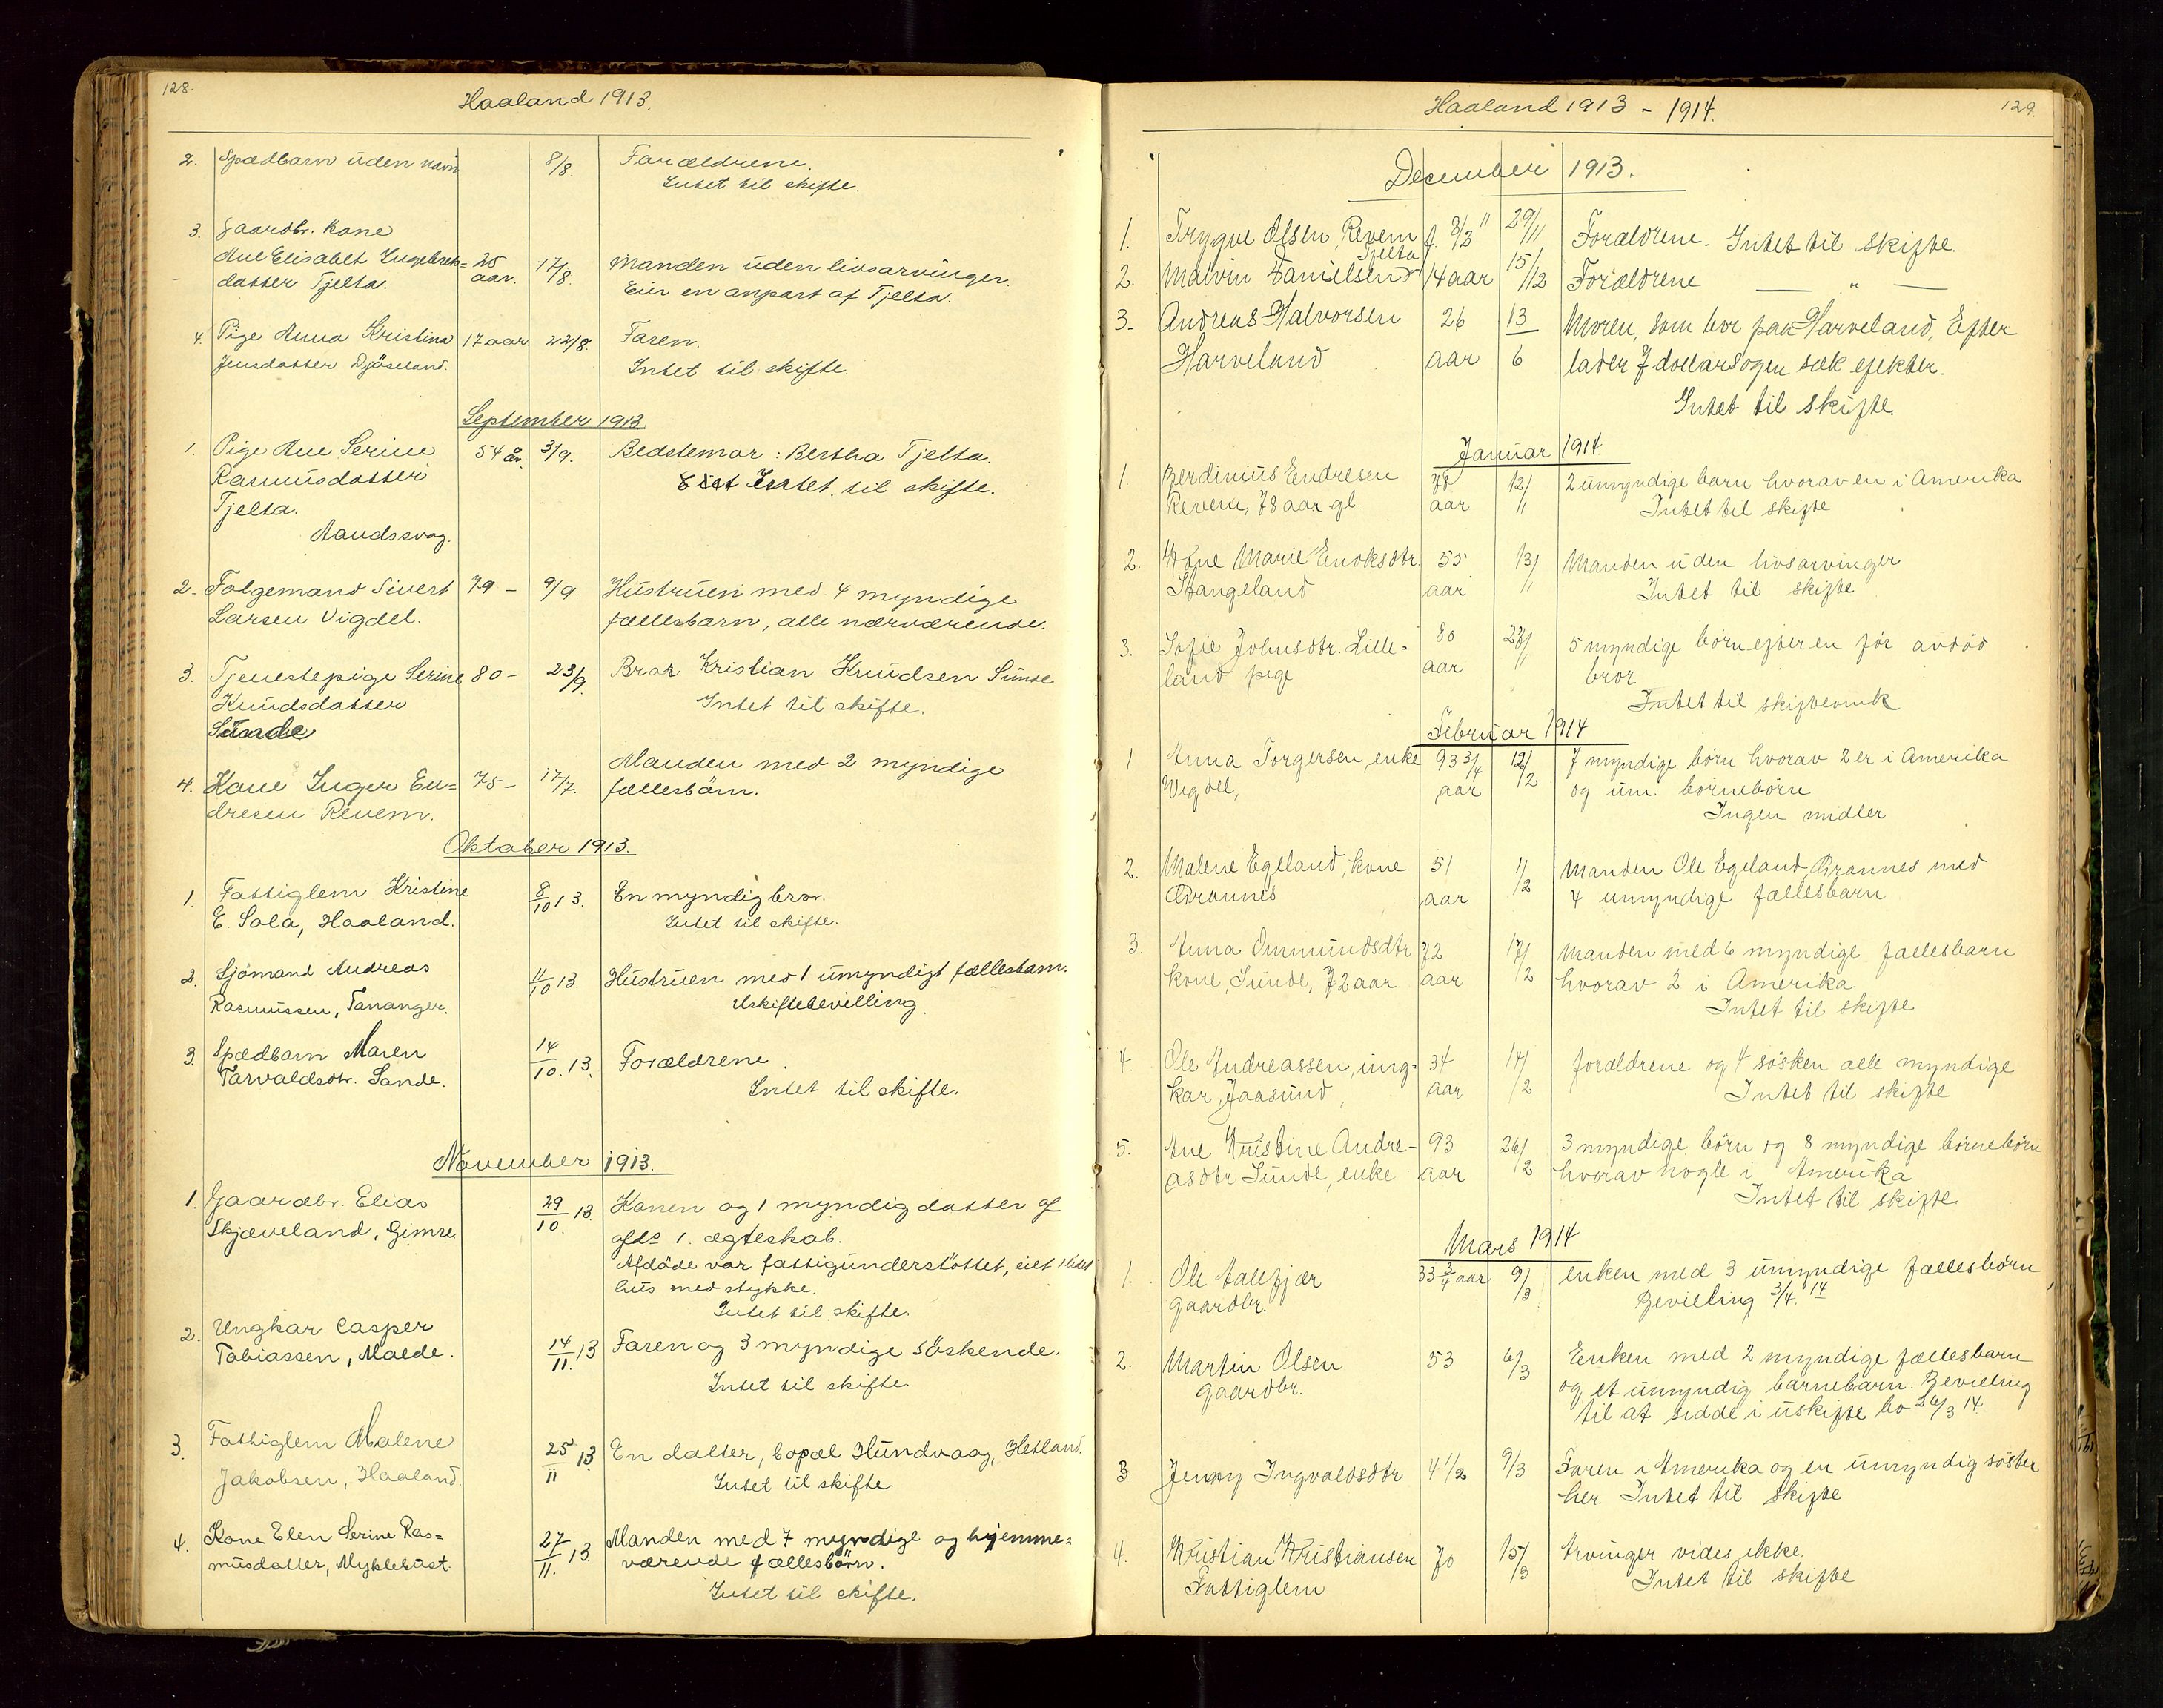 128.
Haaland 1913.
2. Spædbarn uden navn 8/8. Forældrene.
Intet til skifte.
3. Gaardbr. Kone
Ane Elisabet Ingebrets= 25 17/8. Manden uden livsarvinger.
datter Tjelta. aar. Eier en anpart af Tjelta.
4. Pige Anna Kristina 17 aar 22/8. Faren.
Jensdatter Djöseland. Intet til skifte.
September 1913.
1. Pige Ane Serine 54 år. 3/9. Bedstemor: Bertha Tjelta.
Rasmusdatter Intet til skifte.
Tjelta.
Aandssvag.
2. Folgemand Sivert 79 - 9/9. Hustruen med 4 myndige
Larsen Vigdel. fællesbarn, alle nærværende.
3. Tjenestepige Serine 80 - 23/9. Bror Kristian Knudsen Sunde
Knudsdatter Intet til skifte.
Sunde
Manden med 2 myndige
4. Kone Inger En= 75 - 17/7. fællesbörn.
dresen Revem.
Oktober 1913.
1. Fattiglem Kristine 8/10 13. En myndig bror.
E. Sola, Haaland. Intet til skifte.
2. Sjömand Andreas 11/10 13. Hustruen med 1 umyndigt fællesbarn.
Rasmussen, Tananger. Uskiftebevilling
3. Spædbarn Maren 14/10. 13. Forældrene.
Torvaldsdtr. Sande. Intet til skifte.
November 1913.
1. Gaardbr. Elias 29/10. 13. Konen og 1 myndig datter af
Skjæveland, Gimre. afds 1. ægteskab.
Afdöde var fattigunderstöttet, eiet 1 litet
hus med stykke.
Intet til skifte.
2. Ungkar Casper
Tobiassen, Malde. 14/11. 13 Faren og 3 myndige söskende.
Intet til skifte.
3. Fattiglem Malene 25/11 13. En datter, bopæl Hundvaag, Hetland.
Jakobsen, Haaland. Intet til skifte
4. Kone Elen Serine Ras= 27/11. 13. Manden med 7 myndige og hjemme=
musdatter, Myklebust. værende fællesbörn.
Intet til skifte.
Haaland 1913 - 1914. 129.
December 1913.
1. Trygve Olsen, Revem f. 8/3 11 29/11 Forældrene. Intet til skifte.
Tjelta
2. Malvin Danielsen 14 aar 15/12 Forældrene — " —
3. Andreas Halvorsen 26 13 Moren, som bor paa Harveland, Efter
Harveland aar 6 lader 7 dollars og en sæk efekter.
Intet til skifte.
Januar 1914
1. Berdinius Endresen 78 12/1 2 umyndige barn hvorav en i Amerika
Revem, 78 aar gl. aar Intet til skifte
2. Kone Marie Enoksdtr. 55 13/1 Manden uden livsarvinger
Stangeland aar Intet til skifte
3. Sofie Johnsdtr. Lille= 80 5 myndige börn efter en för avdöd
land pige aar bror.
Intet til skifte
Februar 1914
1 Anna Torgersen, enke 93 3/4 12/2 7 myndige börn hvorav 2 er i Amerika
Vigdel, aar og um. börnebörn
Ingen midler
2. Malene Egeland, kone 51 1/2 Manden Ole Egeland, Grannes med
Grannes aar 4 umyndige fællesbarn
3. Anna Ommundsdtr 72 17/2 Manden med 6 myndige fællesbarn
kone, Sunde, 72 aar aar hvorav 2 i Amerika
Intet til skifte
4. Ole Andreassen, ung= 34 14/2 forældrene og 4 sösken alle myndige
kar, Jaasund, aar Intet til skifte
5. Ane Kristine Andre- 93 26/2 3 myndige börn og 8 myndige börnebörn
asdtr Sunde, enke aar hvorav nogle i Amerika
Intet til skifte
Mars 1914
1. Ole 33 3/4 aar 9/3 enken med 3 umyndige fællesbörn
gaardbr. Bevilling 3/4. 14
2. Martin Olsen 53 6/3 Enken med 2 myndige fællesbarn
gaardbr. og et umyndig barnebarn. Bevilling
til at sidde i uskifte bo 26/3 14.
3. Jenny Ingvaldsdtr 4 1/2 9/3 Faren i Amerika og en umyndig söster
her. Intet til skifte
4. Kristian Kristiansen 70 15/3 Arvinger vides ikke.
Fattiglem Intet til skifte